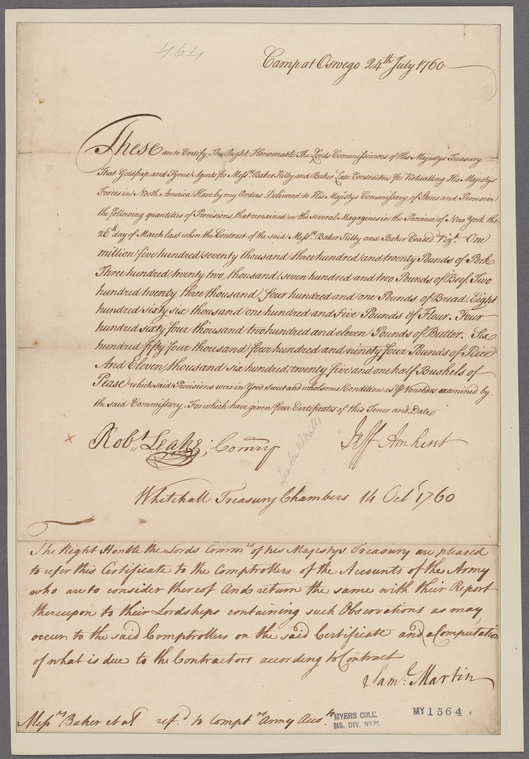 464
Camp at Oswego 24th July 1760
These are to Certify The Right Honourable The Lords Commissioners of His Majestys Treasury
That Goldfrap and Hymer Agents for Messrs Baker Kilby and Baker Late Contractors for Victualling His Majestys
Forces in North America Have by my Orders Delivered to His Majestys Commissary of Stores and Provision
the following quantities of Provisions, that remained in the several Magazines in the Province of New York the
26th day of March last when the Contract of the said Messrs Baker Kilby and Baker Ceased Vizt. One
million five hundred seventy thousand three hundred and twenty Pounds of Pork
Three hundred twenty two, thousand, seven hundred and two Pounds of Beef Two
hundred twenty three thousand four hundred and one Pounds of Bread. Eight
hundred sixty six thousand one hundred and five Pounds of Flour. Four
hundred sixty four thousand two hundred and eleven Pounds of Butter. Six
hundred fifty four thousand four hundred and ninety four Pounds of Rice
And Eleven thousand six hundred, twenty five and one half Bushels of
Pease which said Provisions were in Good sweet and wholesome Condition as Vouchers examined by
the said Commissary. For which have given four Certificates of this Tenor and Date
Robt Leake, Commry
Jeff Amherst
Whitehall Treasury Chambers 14 Octr 1760
The Right Honble the Lords Commrs of his Majestys Treasury are pleased
to refer this Certificate to the Comptrollers of the Accounts of the Army
who are to consider thereof and return the same with their Report
thereupon to their Lordships containing such Observations as may
occur to the said Comptrollers on the said Certificate and a Computation
of what is due to the Contractors according to Contract
Saml Martin
Messrs Baker et al refd to Comptrs Army Accots
MYERS COLL.
MS. DIV. NYPL
MY 1564